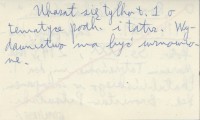 Ukazał się tylko t. 1 o
tematyce podh. i tatrz. Wy-
dawnictwo ma być wznowio-
ne.